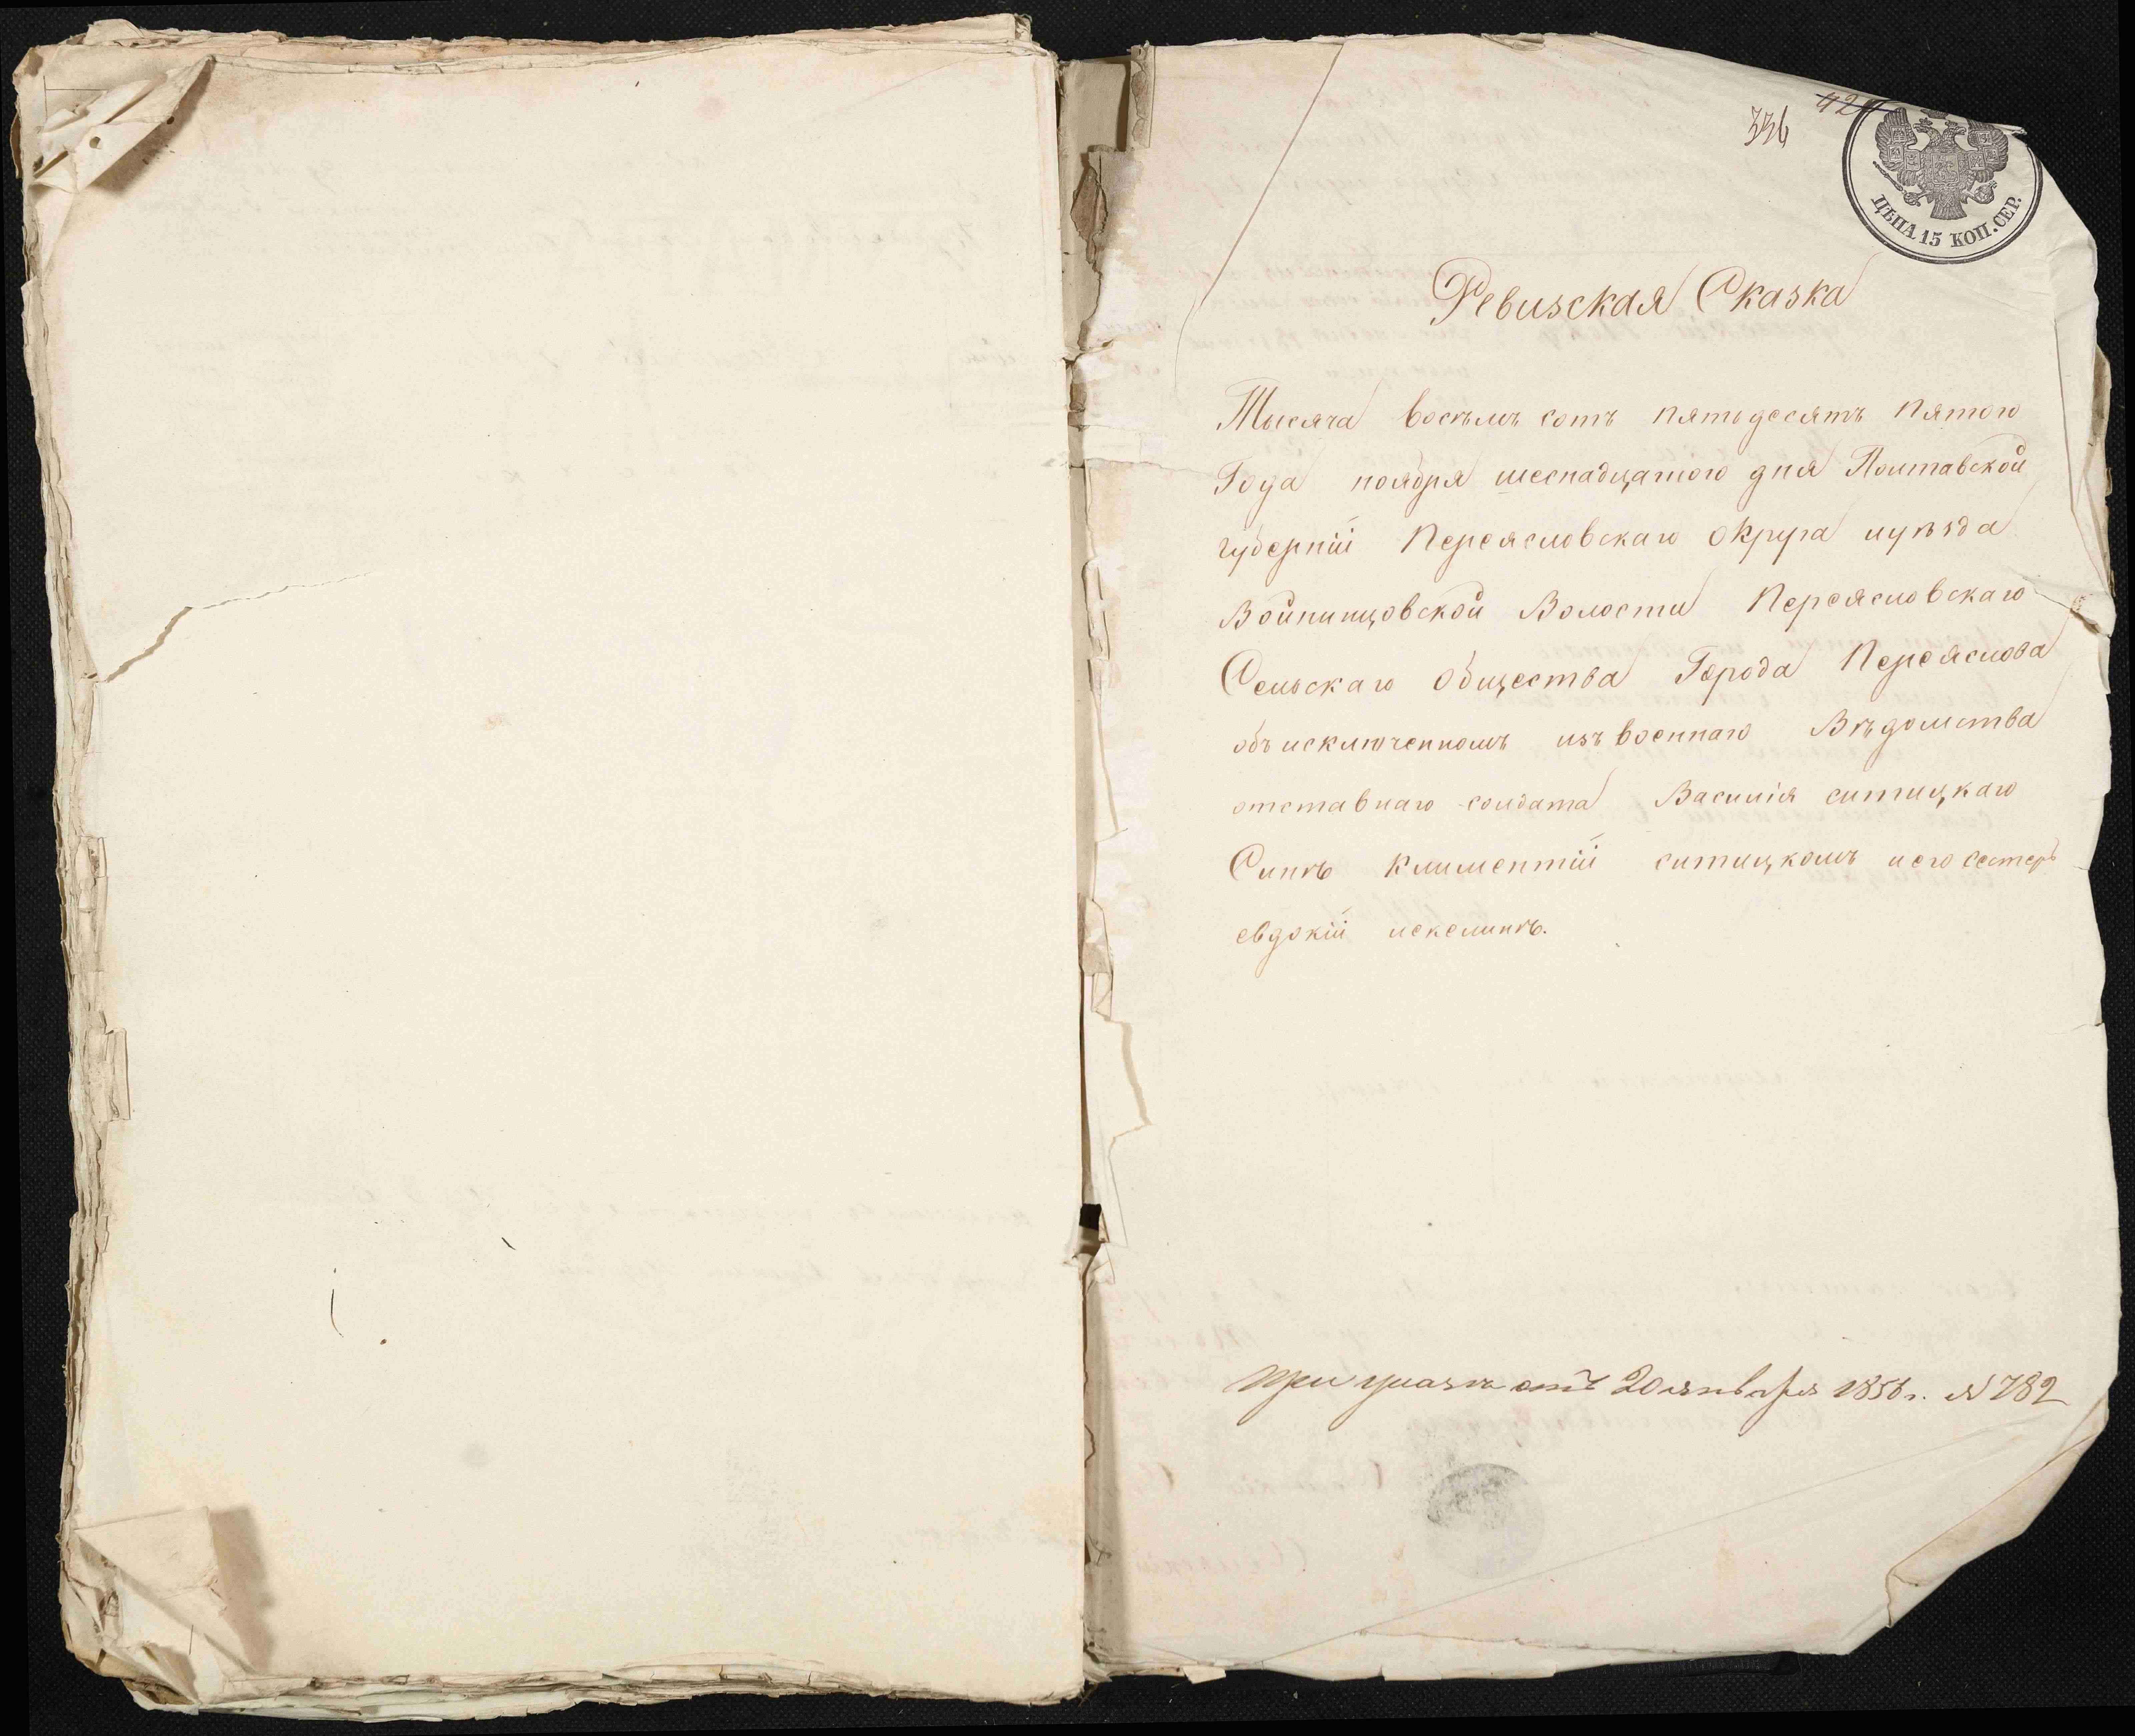 336
42
ЦѢНА 15 КОП. СЕР.
Ревизская Сказка
Тысяча восѣмъ сотъ пятьдесятъ пятого
Года ноября шеснадцатого дня Полтавской
губерніи Переясловскаго округа иуѣзда
Войнинцовской Волости Переясловскаго
Сельскаго общества Города Переяслова
объ исключенномъ изъ военнаго Вѣдомства
отставнаго солдата Василія ситицкаго
Синѣ Климентіи ситицкомъ и его сестерѣ
евдокіи
при указѣ отъ 20 января 1856 г. № 782